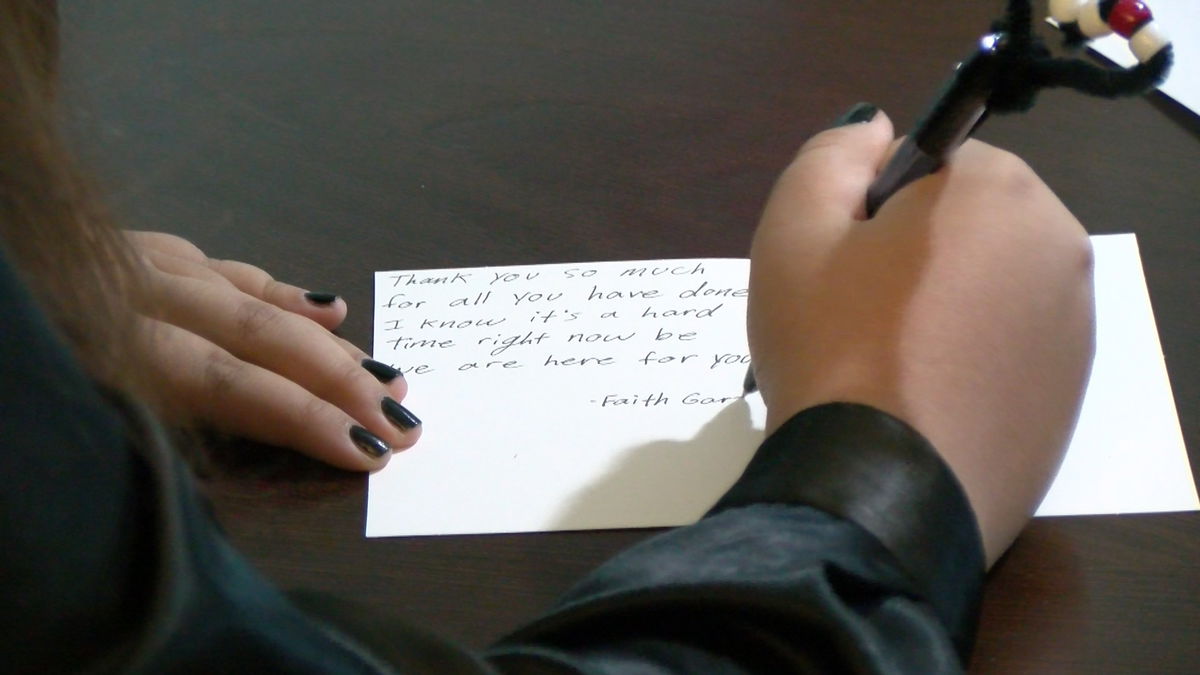 Thank you so much
for all you have done
I know it's a hard
time right now be
we are here for you
-Faith Gar